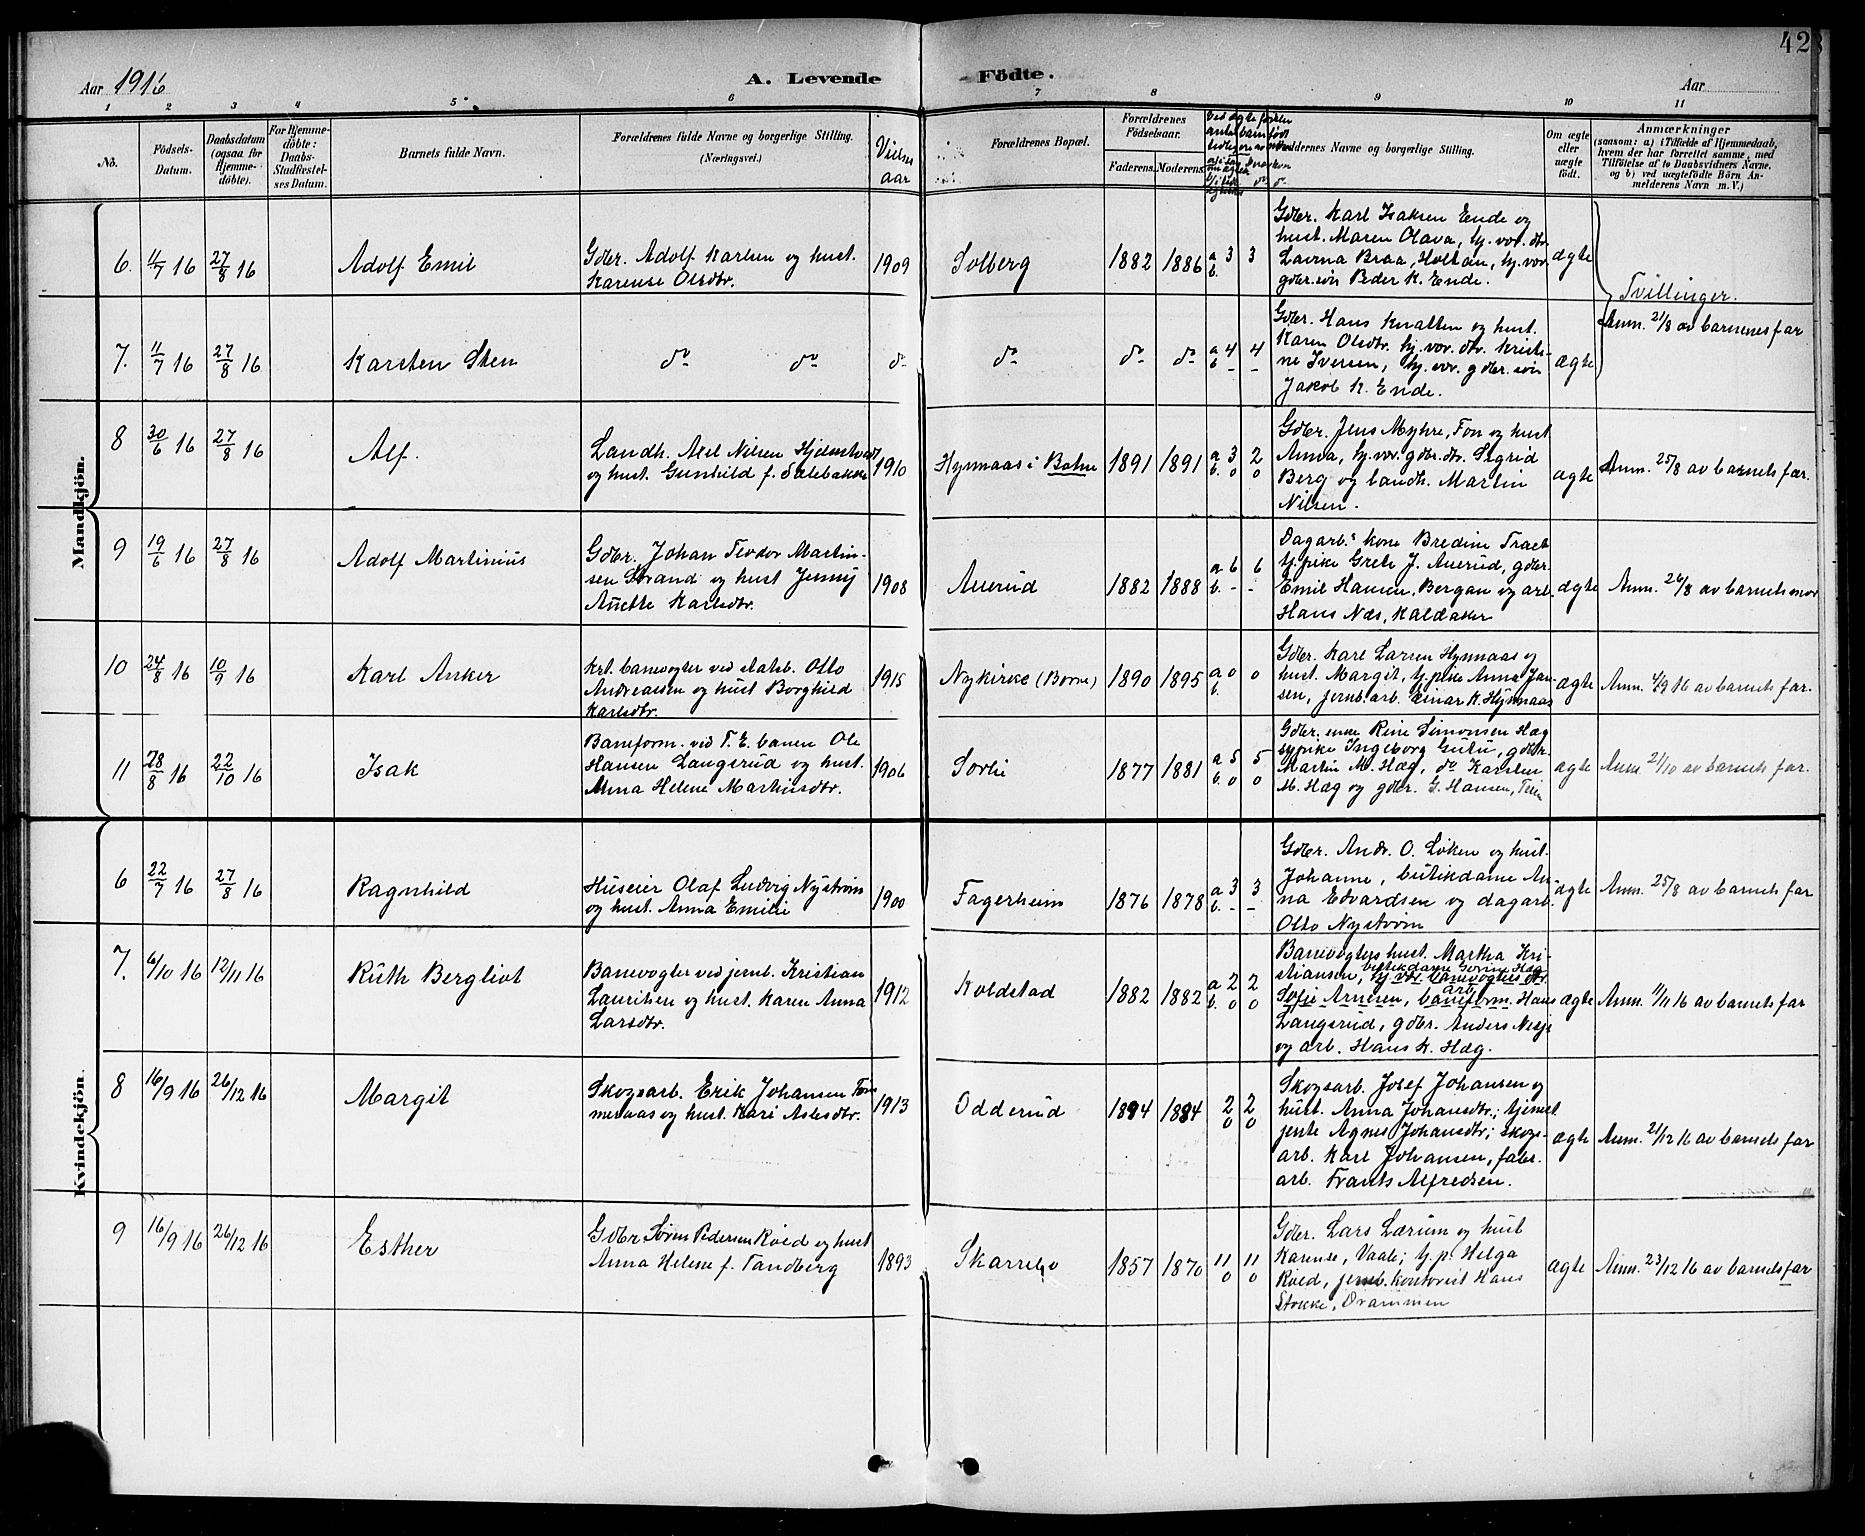 428
Aar 1916
A. Levende Födte.
Aar
1 2 3 4 5 6 7 8 9 10 11
No.
Födsels-
Datum.
Daabsdatum
(ogsaa for
Hjemme-
döbte).
For Hjemme-
döbte:
Daabs-
Stadfæstel-
ses Datum.
Barnets fulde Navn.
Forældrenes fulde Navne og borgerlige Stilling.
(Næringsvei.)
Vielses
aar
Forældrenes Bopæl.
Forældrenes
Fødselsaar.
Faderens. Moderens.
Faddernes Navne og borgerlige Stilling.
Om ægte
eller
uægte
födt.
Anmærkninger
(saasom: a) i Tilfælde af Hjemmedaab,
hvem der har forrettet samme, med
Tilföielse af to Daabsvidners Navne,
og b) ved uægtefödte Börn An-
melderens Navn m. V.)
Mandkjön.
6. 11/7 16 27/8 16 Adolf Emil
Gdbr. Adolf Karlsen og hust.
Karense Olsdtr.
1909 Solberg 1882 1886 a 3 3
b.
Gdbr. Karl Isaksen Ende og
hust. Maren Olava, hj. vær. dtr.
Lavina Braa, Holtan, hj. vær.
gdbr. søn Peder K. Ende.
ægte
Tvillinger.
Anm. 21/8 av barnenes far
7. 11/7 16 27/8 16 Karsten Sten
do do do do do do a 4 4
b - -
Gdbr. Hans Knatten og hust.
Karen Olsdtr. hj. vær. dtr. Kristi-
ne Iversen, hj. vær. gdbr. søn
Jakob K. Ende.
ægte
8 30/6 16 27/8 16 Alf.
Landh. Axel Nilsen Hjelmtvedt
og hust. Gunhild f. Salebakke
1910 Hynnaas i Botne 1891 1891 a 3 2
b. 0 0
Gdbr. Jens Myhre, Fon og hust
Anna, hj. vær. gdbr. dtr. Sigrid
Berg og landh. Martin
Nilsen.
ægte
Anm. 25/8 av barnets far.
9 19/6 16 27/8 16 Adolf Martinius
Gdbr. Johan Teodor Martin-
sen Strand og hust Jenny
Anette Karlsdtr.
1908 Auerud 1882 1888 a 6 6
b. - -
Dagarb.s kone Bredine Traet
tj. pike Grete J. Auerud, gdbr.
Emil Hansen, Bergan og arb.
Hans Næs, Kaldaker
ægte
Anm. 26/8 av barnets mor
10 24/8 16 10/9 16 Karl Anker
Kst. banevogter ved statsb. Otto
Andreassen og hust Borghild
Karlsdtr.
1915 Nykirke (Borre) 1890 1895 a 0 0
b.
Gdbr. Karl Larsen Hynnaas og
hust. Margit, tj. pike Anna Jan-
sen, jernb. arb. Einar K. Hynnaas
ægte
Anm. 4/9 16 av barnets far.
11 28/8 16 22/10 16 Isak
Baneform. ved T. E. banen Ole
Hansen Langsrud og hust.
Anna Helene Mathisdtr.
1906 Sorti 1877 1881 a 5 5
b. 0 0
Gdbr. enke Rine Simonsen Hæg
sypike Ingeborg Gutu, gdbr.
Martin M. Hæg, do Karsten
M. Hæg og gdbr. G. Hansen, Teien
ægte
Anm. 21/10 av barnets far.
Kvindekjön.
6 22/7 16 27/8 16 Ragnhild
Huseier Olaf Ludvig Nystrøm
og hust. Anna Emilie
1900 Fagerheim 1876 1878 a 3 3
b. - -
Gdbr. Andr. O. Løken og hust.
Johanne, butikdame An-
na Edvardsen og dagarb.
Otto Nystrøm
ægte
Anm. 25/8 av barnets far
7. 6/10 16 12/11 16 Ruth Bergliot
Banevogter ved jernb. Kristian
Lauritsen og hust. Karen Anna
Larsdtr.
1912 Koldstad 1882 1882 a 2 2
b. 0 0
Banevogters hust. Martha Kri-
stiansen, butikdame Gorine Hæg
hj. vær. banevogters dtr.
arb.
Sofie Arnesen, baneform. Hans
Langsrud, gdbr. Anders Nesje
og arb. Hans K. Hæg.
ægte
Anm. 11/11 16 av barnets far
8 16/9 16 26/12 16 Margit
Skogsarb. Erik Johansen Tom-
meraas og hust. Kari Aslesdtr.
1913 Odderud 1884 1884 2 2
0 0
Skogsarb. Josef Johansen og
hust. Anna Johansdtr.; tjenest
jente Agnes Johansdtr; skogs-
arb. Karl Johansen, fabr.
arb. Frants Alfredsen.
ægte
Anm. 21/12 16 av barnets far
9 16/9 16 26/12 16 Esther
Gdbr Søren Pedersen Røed og hust
Anna Helene f. Tandberg
1893 Skarrebo 1857 1870 11 11
0 0
Gdbr. Lars Lærum og hust
Karense, Vaale; tj. p. Helga
Røed, jernb. kontorist Hans
Stokke, Drammen
ægte
Anm. 23/12 16 av barnets far